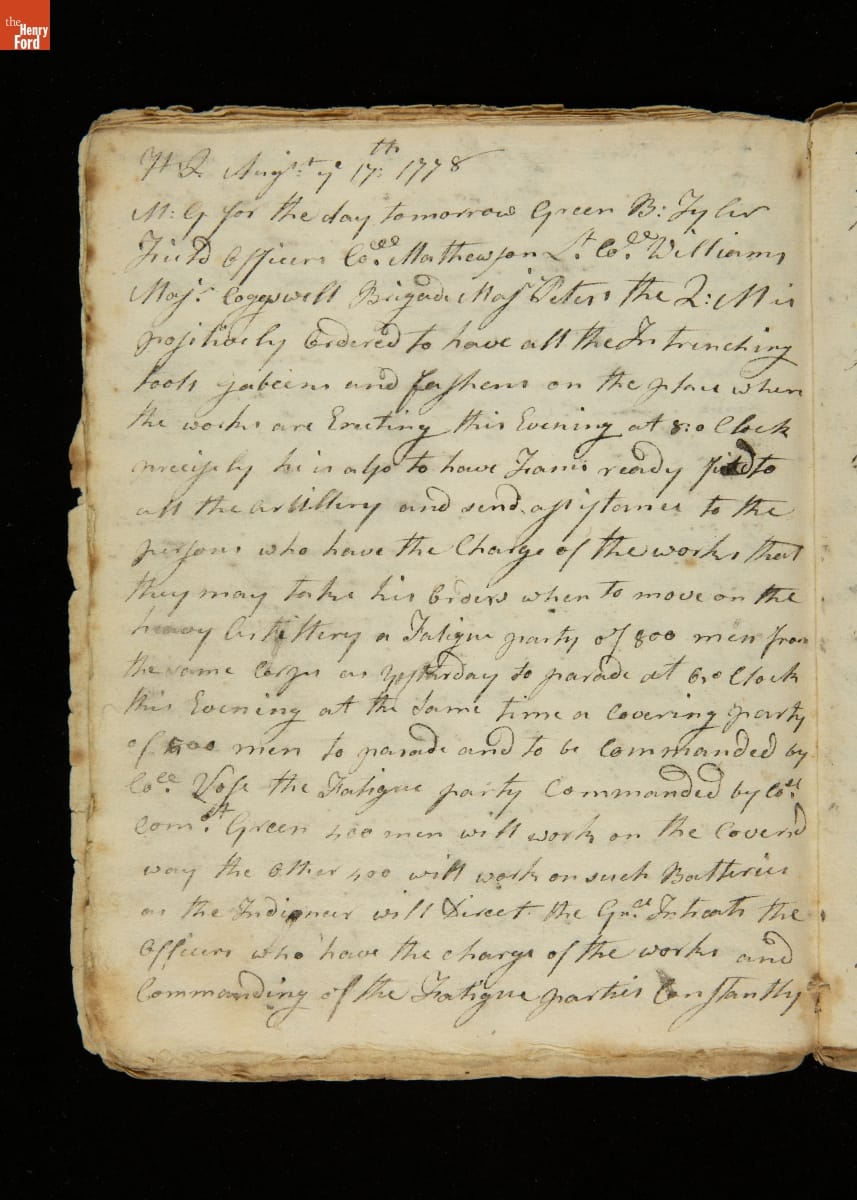 the
Henry
Ford
H Q Augst ye 17th 1778
M: G for the day tomorrow Green B: Tyler
Field Officers Coll. Mathewson Lt. Coll. Williams
Majr. Coggswell Brigade Majr Peters the Q: M is
positively Ordered to have all the Intrenching
tools gabeens and fashens on the place where
the works are Erecting this Evening at 8: o Clock
precisely he is also to have Teams ready fixed to
all the artillery and send assistance to the
persons who have the Charge of the works that
they may take his Orders when to move on the
heavy Artillery a Fatigue party of 800 men from
the same Corps as yesterday to parade at 6: o Clock
this Evening at the same time a Covering party
of men to parade and to be Commanded by
Coll. Vose the Fatigue party Commanded by Coll.
Comdt. Green 400 men will work on the Coverd
way the Other 400 will work on such Batteries
as the Indinear will Direct the Gnel. Intreats the
Officers who have the charge of the works and
Commanding of the Fatigue parties Constantly